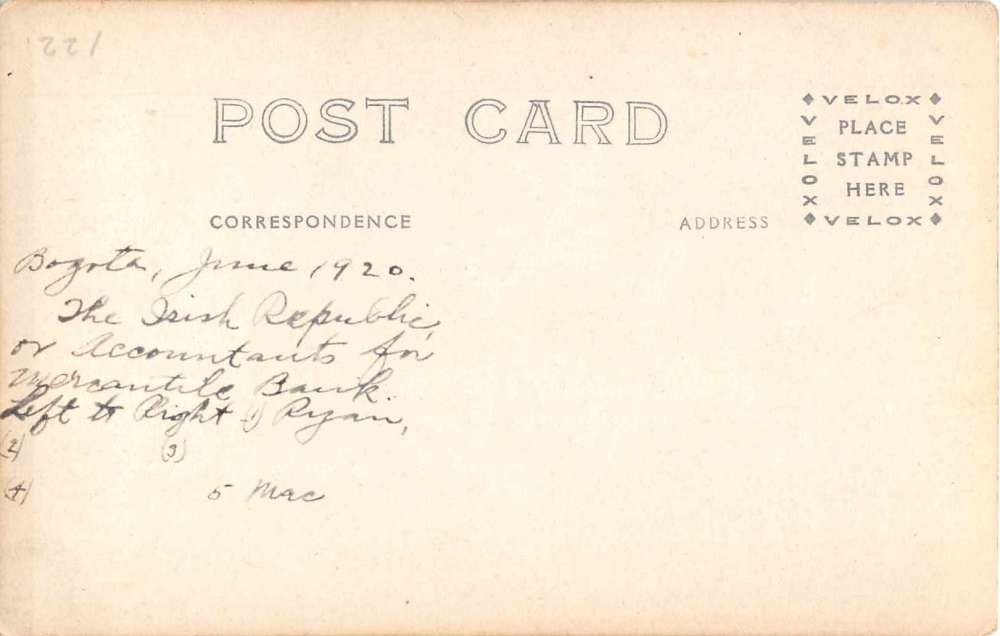 '221
POST CARD
VELOX
VELOX
PLACE
STAMP
HERE
VELOX
VELOX
CORRESPONDENCE
ADDRESS
Bogota, June 1920.
The Irish Republic,
or Accountants for
Mercantile Bank.
Left to Right (1) Ryan,
(2) (3)
(4) 5 Mac